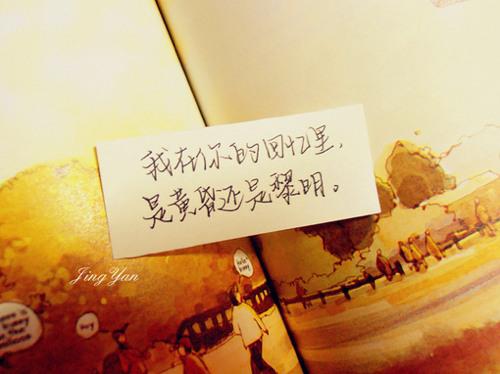 我在你的回忆里，
是黄昏还是黎明。
JingYan
hey